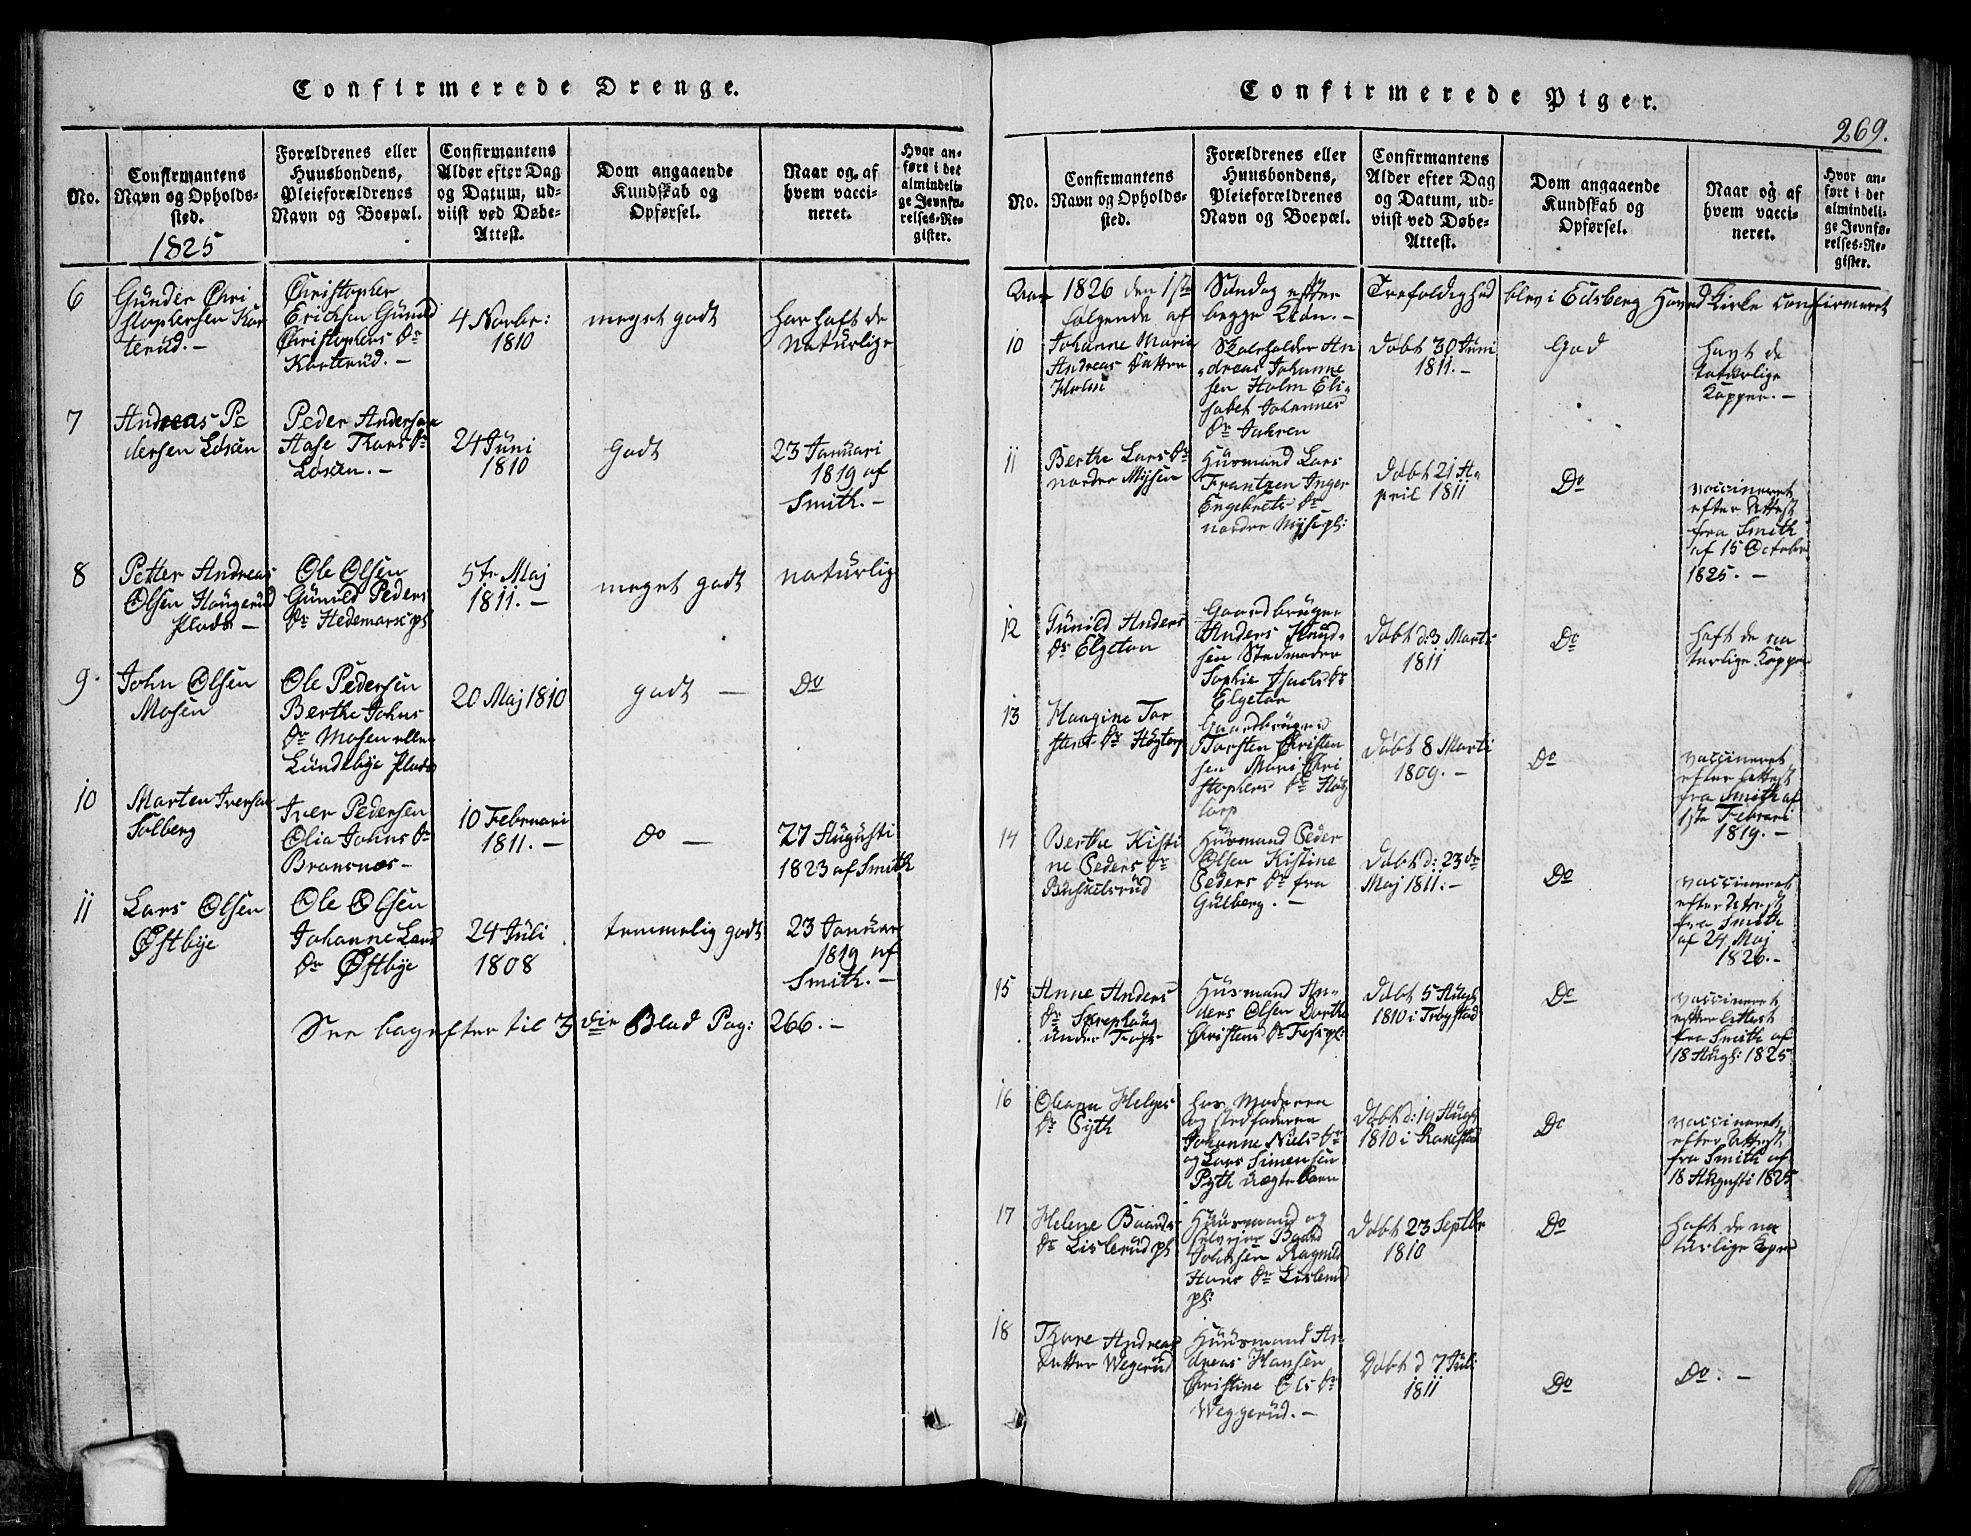 Confirmerede Drenge.
No.
Confirmantens
Navn og Opholds-
sted.
1825
Forældrenes eller
Huusbondens,
Pleieforældrenes
Navn og Boepæl.
Confirmantens
Alder efter Dag
og Datum, ud-
viist ved Døbe-
Attest.
Dom angaaende
Kundskab og
Opførsel.
Naar og af
hvem vacci-
neret.
Hvor an-
ført i det
almindeli-
ge Jevnfø-
relses-Re-
gister.
6
Gunder Chri
stophersen Kar
terud. -
Christopher
Ericksen Gunild
Christophers Dr
Karterud. -
4 Novbr:
1810
meget godt
har haft de
Naturlige
7
Andreas Pe
dersen Losen
Peder Andersen
Aase Thors Dr
Losen. -
24 Juni
1810
Godt
23 Januari
1819 af
Smith. -
8
Petter Andreas
Olsen Haugerud
Plads -
Ole Olsen
Gunild Peders
Dr Hedemark pl
5te Maj
1811. -
meget godt
naturlig
9
John Olsen
Mosen
Ole Pedersen
Berthe Johns
Dr Mosen eller
Lundebye Plads
20 Maj 1810
godt -
Do
10
Marten Iversen
Solberg
Iver Pedersen
Olia Johns Dr
Bransnæs -
10 Februari
1811. -
Do -
27 Augusti
1823 af Smith
11
Lars Olsen
Østbye
Ole Olsen
Johanne Lars
Dr Østbye
24 Juli
1808
temmelig godt
23 Januar
1819 af
Smith. -
See bagefter til 3die Blad Pag: 266. -
Confirmerede Piger.
269.
No.
Confirmantens
Navn og Opholds-
sted.
Forældrenes eller
Huusbondens,
Pleieforældrenes
Navn og Boepæl.
Confirmantens
Alder efter Dag
og Datum, ud-
viist ved Døbe-
Attest.
Dom angaaende
Kundskab og
Opførsel.
Naar og af
hvem vacci-
neret.
Hvor an-
ført i det
almindeli-
ge Jevnfø-
relses-Re-
gister.
Aar 1826 den 1ste Søndag efter Trefoldighed blev i Edsberg Hoved Kirke Confirmeret
følgende af begge Kiøn. -
10
Johanne Maria
Andreas Datter
Holm
Skoleholder An
dreas Johanne
sen Holm Eli-
sabet Johannes
Dr Jahren
Døbt 30 Juni
1811. -
God
havt de
Naturlige
Kopper. -
11
Berthe Lars Dr
nordre Mysen
Husmand Lars
Frantzen Inger
Engebrets Dr
nordre Myse pl:
Døbt 21 A-
pril 1811
Do
vaccineret
efter Attest
fra Smith
af 15 Octobr
1825. -
12
Gunild Anders
Dr Elgeton
Gaardbruger
Anders Knud-
sen Stedmoder
Sophie Isachs Dr
Elgeton
Døbt d: 3 Marti
1811
Do
haft de na
turlige Kopper
13
Haagine Tor
stens Dr Høgtorp
Gaardbruger
Torsten Christen
sen Mari Chri
stophers Dr Høg
torp
Døbt 8 Marti
1809. -
Do
vaccineret
efter Attest
fra Smith af
1ste Februari
1819. -
14
Berthe Kisti
ne Peders Dr
Buskelsrud
Husmand Peder
Olsen Kistine
Peders Dr fra
Gulberg. -
Døbt d: 23de
Maj 1811. -
Do
vaccineret
efter Attest
fra Smith
af 24 Maj
1826. -
15
Anne Anders
Dr
under
Husmand An-
ders Olsen Dorthe
Christens Dr
Døbt 5 Augs
1810 i Trøgstad
Do
vaccineret
efter Attest
fra Smith af
18 Augs: 1825
16
Oleane Helges
Dr Pyth
hos Moderen
og stedfaderen
Johanne Niels Dr
og Lars Simensen
Pyth uægte barn
Døbt d: 19 Augs
1810 i Rakkestad
Do
vaccineret
efter Attest
fra Smith af
18 Augusti 1825
17
Helene Baards
Dr Lislerud pl
Huusmand og
Selvejer Baard
Johnsen Ragnild
Hans Dr Lislerud
pl:
Døbt 23 Septbr
1810
Do
haft de na
turlige Koper
18
Thore Andreas
Datter Wegerud
Huusmand An
dreas Hansen
Christine Ols Dr
Weggerud. -
Døbt d 7 Juli
1811
Do
Do. -